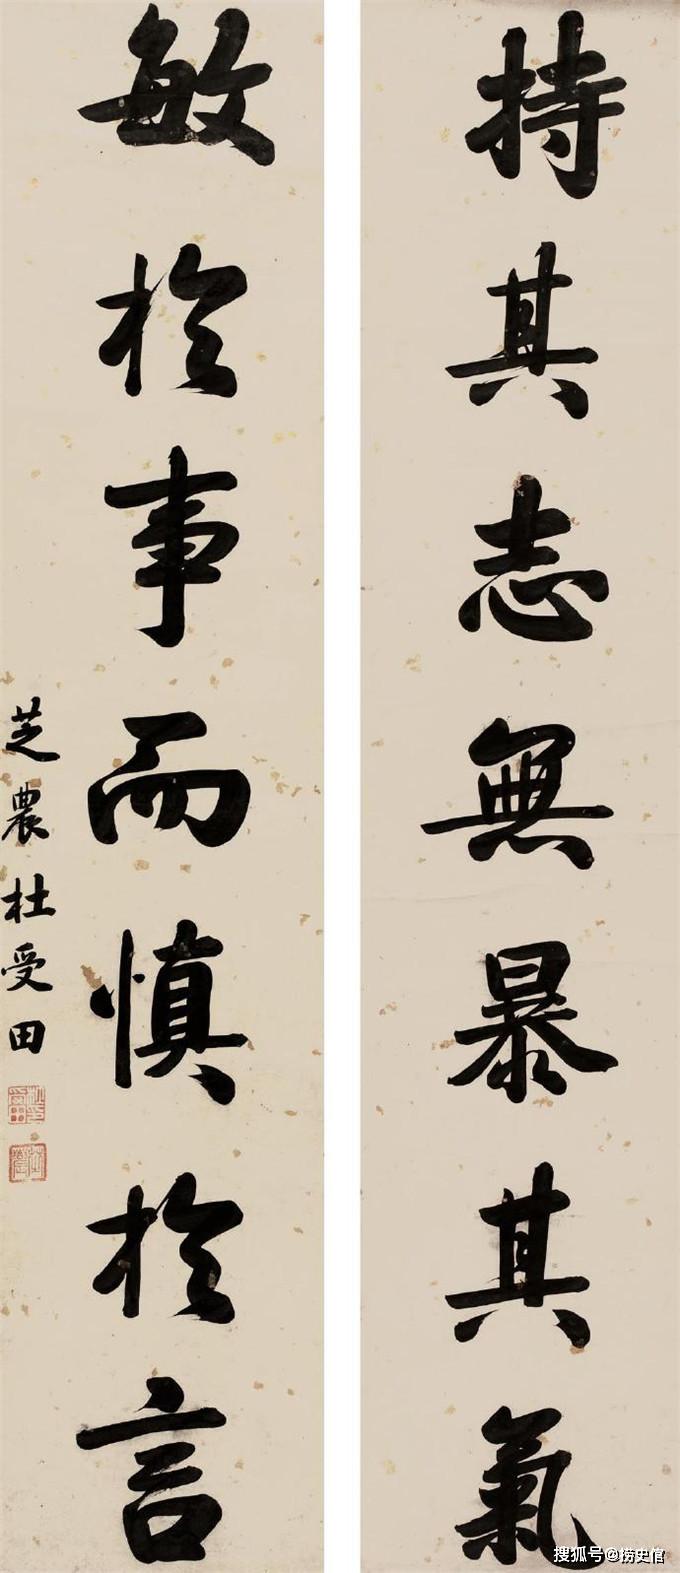 持其志無暴其氣
敏於事而慎於言
芝農杜受田
搜狐号@捞史官